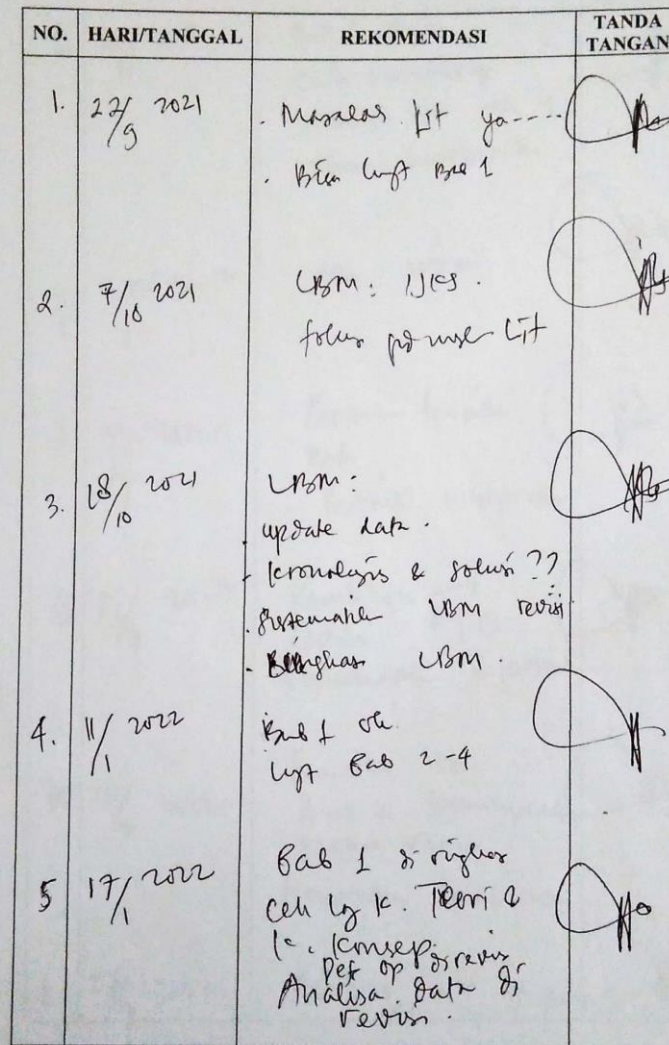 NO. HARI/TANGGAL REKOMENDASI TANDA TANGAN
1. 22/9 2021 . Masalah Lit ya----
. Bisa lnjt Bab 1
2. 7/10 2021 LBM : IJKS.
fokus pd Lit
3. 18/10 2021 LBM :
. update data .
- kronologis & solusi ??
. Sistematika LBM revisi
- Ringkas LBM .
4. 11/1 2022 Bab 1 ok
lnjt Bab 2-4
5 17/1 2022 Bab 1 di ringkas
cek lg k. Teori &
k. konsep.
Def op direvisi
Analisa data di
revisi .